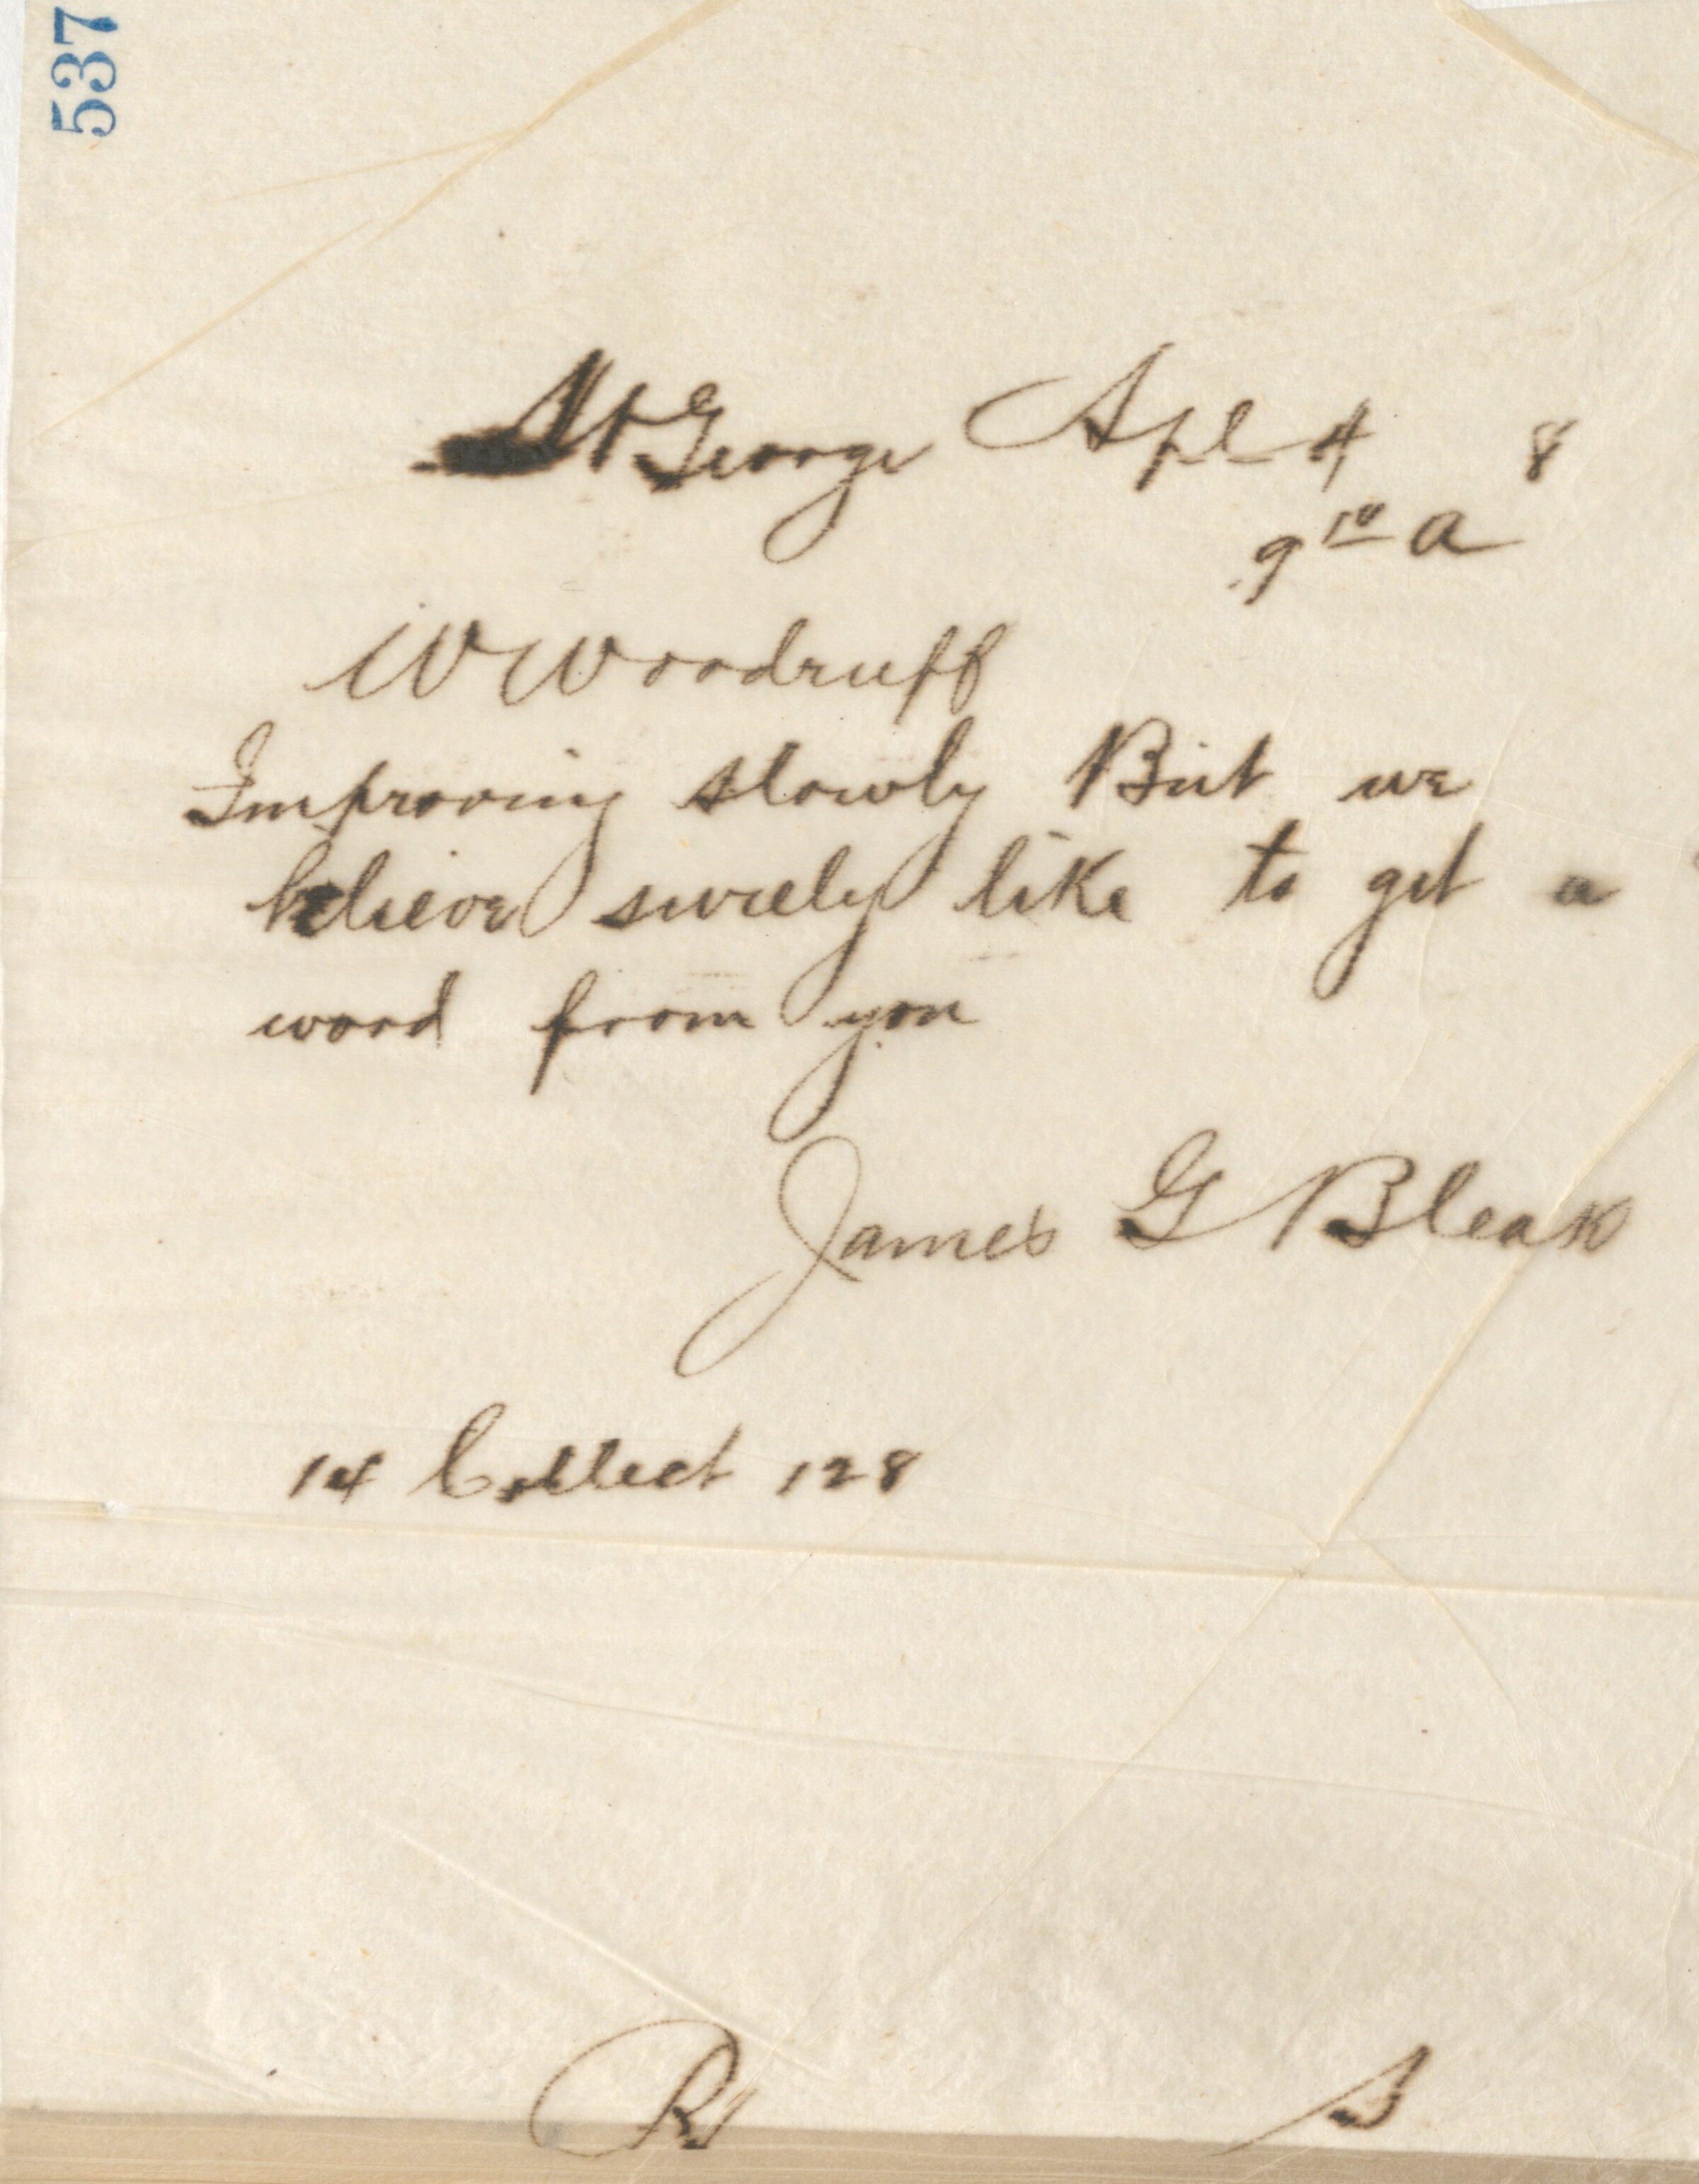 537
St George Apl 4 8
9 10 a
W Woodruff
Improving slowly But we
believe surely like to get a
word from you
James G Bleak
14 Collect 128
R S